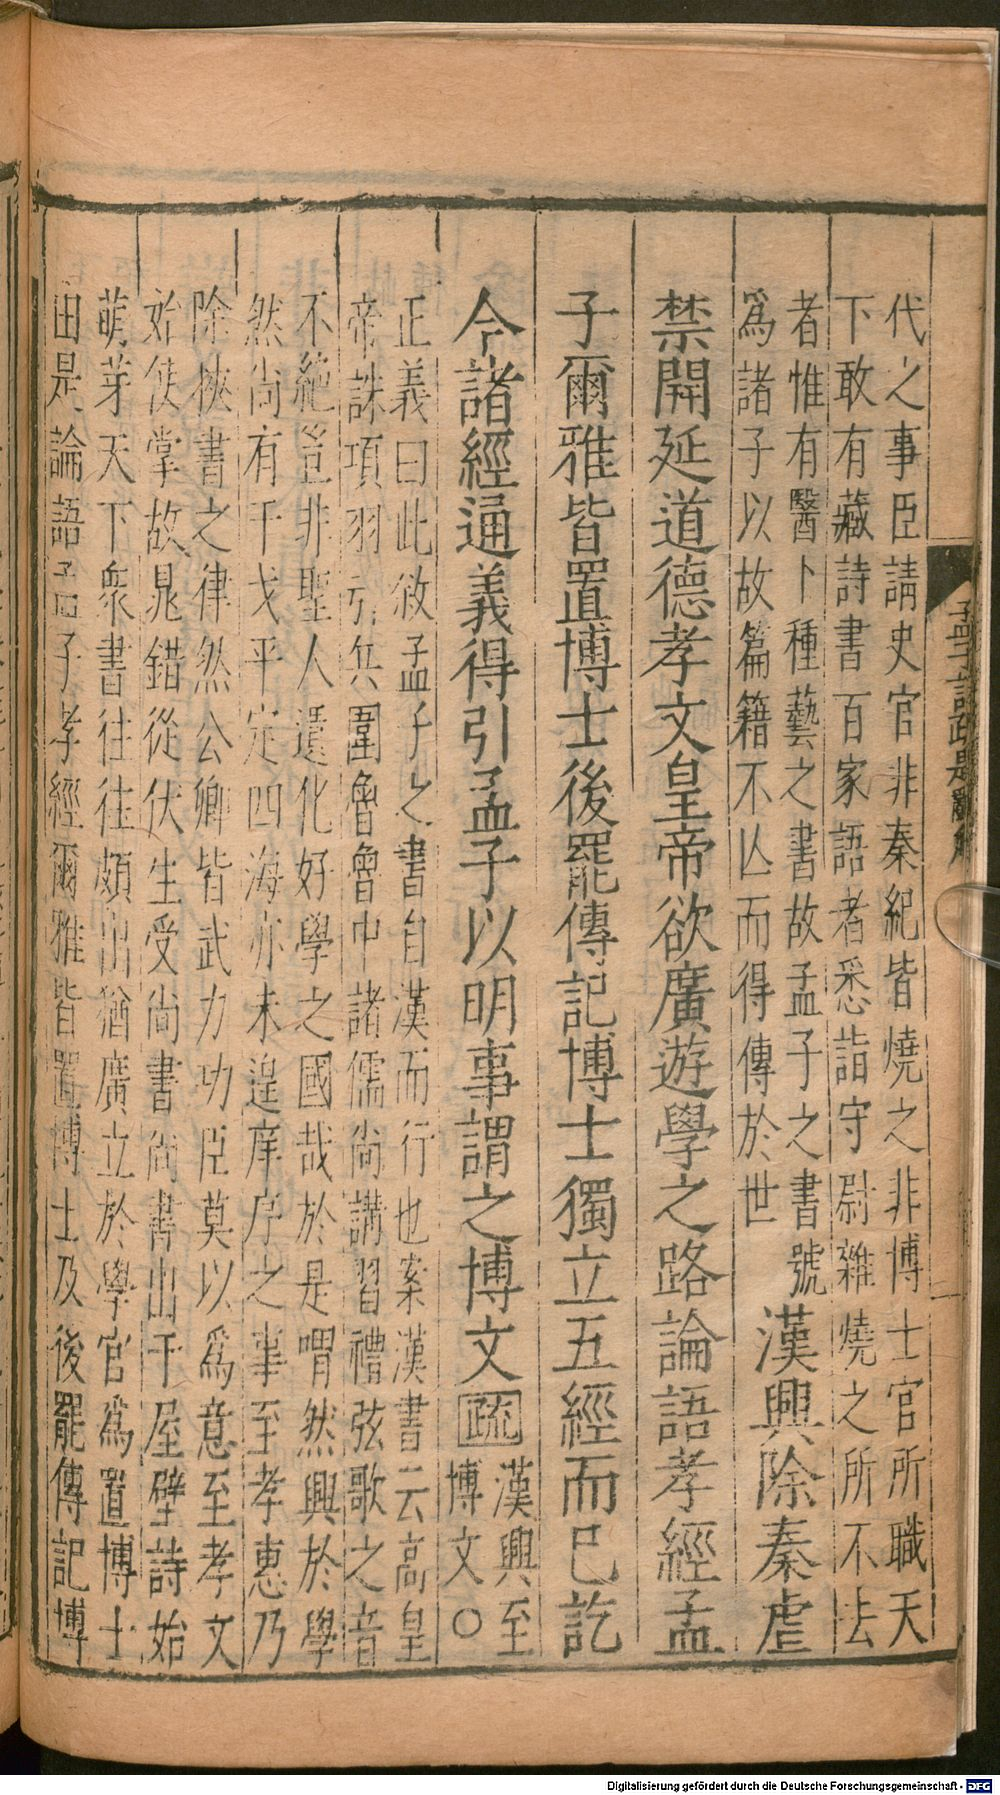 代之事臣請史官非秦紀皆燒之非博士官所職天
下敢有藏詩書百家語者悉詣守尉雜燒之所不去
者惟有醫卜種藝之書故孟子之書號
爲諸子以故篇籍不亾而得傳於世
漢興除秦虐
禁開延道德孝文皇帝欲廣遊學之路論語孝經孟
子爾雅皆置博士後罷傳記博士獨立五經而已訖
今諸經通義得引孟子以明事謂之博文疏
漢興至
博文○
正義曰此敘孟子之書自漢而行也案漢書云高皇
帝誅項羽引兵圍魯魯中諸儒尚講習禮弦歌之音
不絕豈非聖人遺化好學之國哉於是喟然興於學
然尚有干戈平定四海亦未遑庠序之事至孝惠乃
除挾書之律然公卿皆武力功臣莫以爲意至孝文
始使掌故晁錯從伏生受尚書尚書出于屋壁詩始
萌芽天下衆書往往頗出猶廣立於學官爲置博士
由是論語孟子孝經爾雅皆置博士及後罷傳記博
孟子註疏題辭解
Digitalisierung gefördert durch die Deutsche Forschungsgemeinschaft - DFG